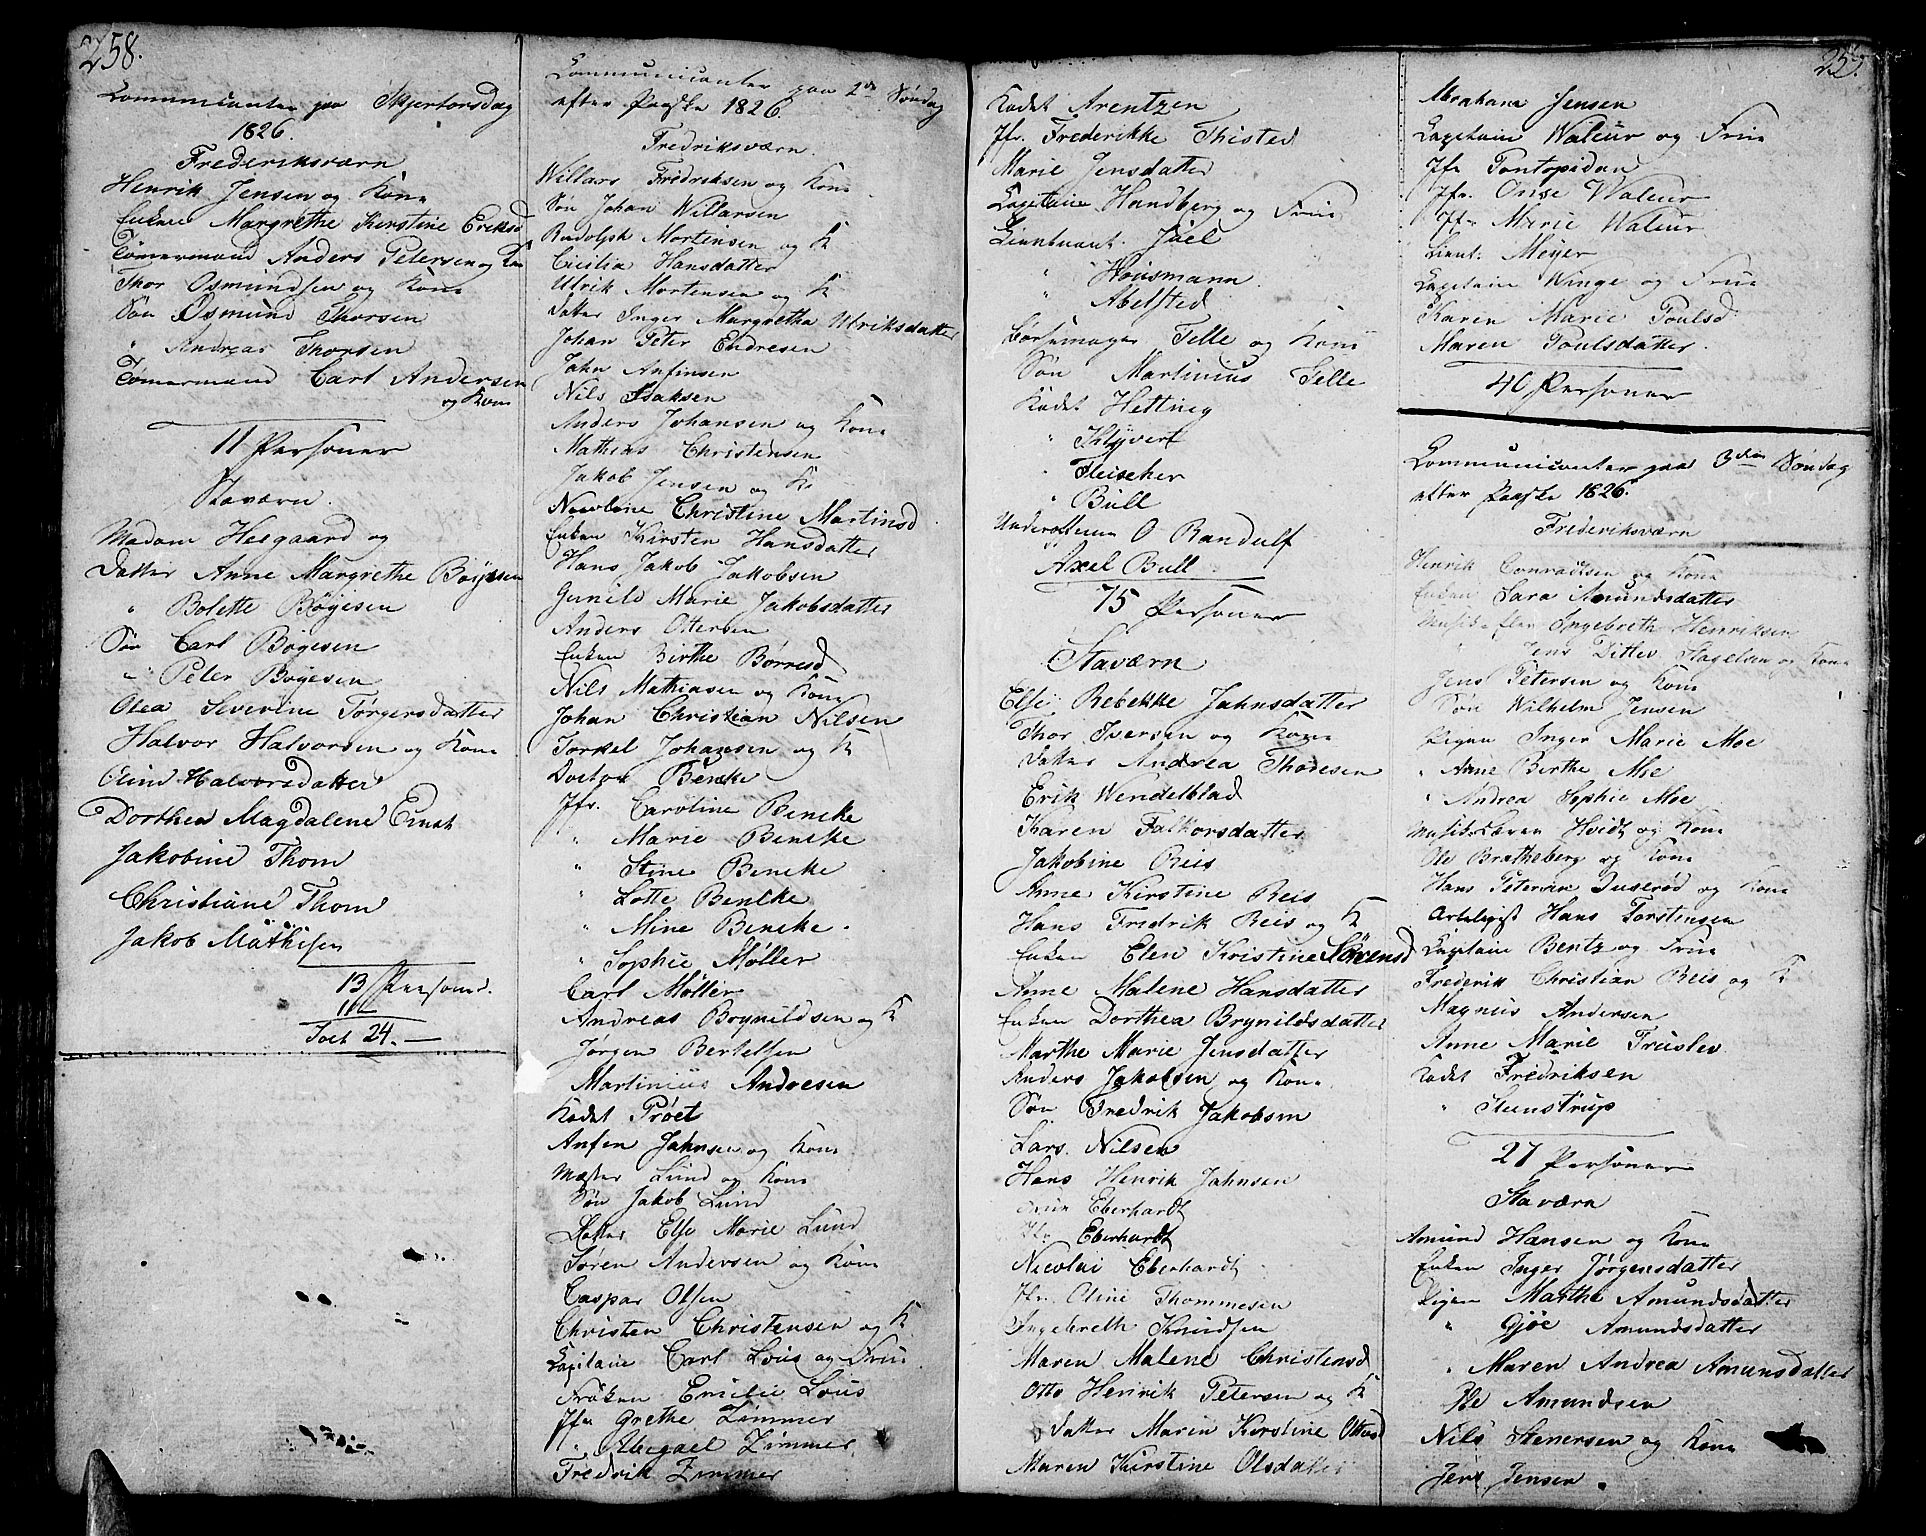 258.
Communicanter paa Skjertorsdag
1826.
Frederiksværn
Henrik Jensen og Kone
Enken Margrethe Kirstine Eriksd
Tömermand Anders Petersen og Kone
Thor Osmundsen og Kone
Sön Osmund Thorsen
" Andreas Thorsen
Tömermand Carl Andersen
og Kone
11 Personer
Staværn.
Madam Heegaard og
Datter Anne Margrethe Böyesen
" Bolette Bøyesen
Sön Carl Bøyesen
" Peter Bøyesen
Olea Severine Törgersdatter
Halvor Halvorsen og Kone
Halvorsdatter
Dorthea Magdalene Ernst
Jakobine Thom
Christiane Thom
Jakob Mathisen
13 Personer.
11
Tot 24.
Communicanter paa 2den Søndag
efter Paaske 1826
Fredriksværn.
Willars Fredriksen og Kone
Sön Johan Willarsen
Rudolph Mortensen og K
Cicilia Hansdatter
Ulrik Mortensen og K
Datter Inger Margretha Ulriksdatter
Johan Peter Endresen
Jahn Anfinsen
Nils Isaksen
Anders Johansen og Kone
Mathias Christensen
Jakob Jensen og K
Christine Martinsd
Enken Kirsten Hansdatter
Hans Jakob Jakobsen
Gunild Marie Jakobsdatter
Anders Ottersen
Enken Birthe Börresd
Nils Mathiasen og Kone
Johan Christian Nilsen
Torkel Johansen og K
Doctor Bencke
Jfr. Caroline Bencke
" Marie Bencke
" Stine Bencke
" Lotte Bencke
" Mine Bencke.
" Sophie Møller
Carl Møller
Andreas Brynildsen og K
Jørgen Bertelsen
Martinius Andresen
Kadet Pröet
Anfen Jahnsen og Kone
Mæster Lund og Kone
Sön Jakob Lund
Datter Else Marie Lund
Sören Andersen og Kone
Caspar Olsen
Christen Christensen og K
Capitaine Carl Lous og Frue
Fröken Emilie Lous
Jfr Grethe Zimmer
" Abegael Zimmer
Fredrik Zimmer
259.
Kadet Arentzen
Jfr. Frederikke Thisted
Marie Jensdatter
Capitaine Handberg og Frue
Lieutnant. Juel
" Housmann
" Abelsted
Telle og Kone
Sön Martinius Telle
Kadet Hettnig
" Klyvert
" Fleischer
" Bull
O Randulf
Axel Bull
75 Personer
Staværn
Else Rebekke Jahnsdatter
Thor Iversen og Kone
Datter Andrea
Erik Wendelblad
Karen Falkorsdatter
Jakobine Reis
Anne Kirstine Reis
Hans Fredrik Reis og K
Enken Elen Kristine Sörensd
Anne Malene Hansdatter
Enken Dorthea Brynildsdatter
Marthe Marie Jensdatter
Anders Jakobsen og Kone
Sön Fredrik Jakobsen
Lars Nilsen
Hans Henrik Jahnsen
Frue Eberhardt
Jfr. Eberhardt
Nicolai Eberhardt
Jfr. Oline Thommesen
Ingebreth Knudsen
Maren Malene Christensd
Otto Henrik Petersen og K
Datter Maren Kirstine Ottosd
Maren Kirstine Olsdatter
Abraham Jensen
Capitaine Waleur og Frue
Jfr Pontopidan
Jfr. Waleur
Jfr Marie Waleur
Lieut. Meyer
Capitaine Winge og Frue
Karen Marie Poulsd
Maren Poulsdatter.
40 Personer
Communicanter paa 3die Søndag
efter Paaske 1826.
Frederiksværn
Henrik Conradtsen og Kone
Enken Sara Amundsdatter
Ingebreth Henriksen
" Jens Ditlev Hagelsen og Kone
Jens Petersen og Kone
Sön Wilhelm Jensen
Pigen Inger Marie Moe
" Anne Birthe Moe
" Andrea Sophie Moe
Hvidt og Kone
Ole Bratheberg og Kone
Hans Petersen og Kone
Hans Torstensen
Capitaine Bentz og Frue
Frederik Christian Reis og K
Magnus Andersen
Anne Marie Truslev
Kadet Fredriksen
" Stenstrup
27 Personer
Staværn
Amund Hansen og Kone
Enken Inger Jørgensdatter
Pigen Marthe Amundsdatter
" Gjöe Amundsdatter
" Maren Andrea Amundsdatter
Ole Amundsen
Nils Stenersen og Kone
Jens Jensen.